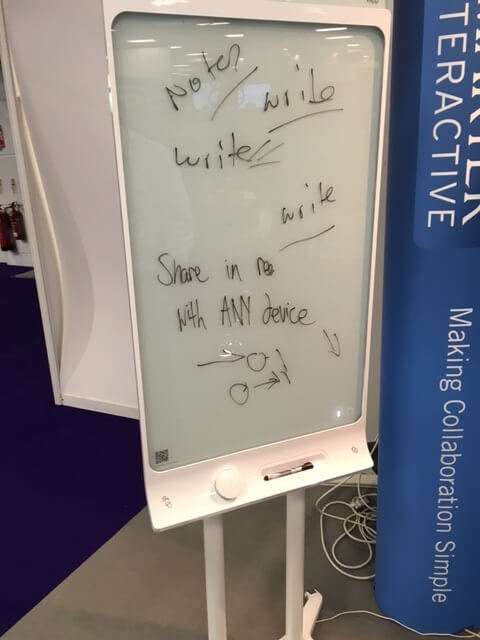 Notes write
write
write
Share in
with ANY device
TERACTIVE
Making Collaboration Simple